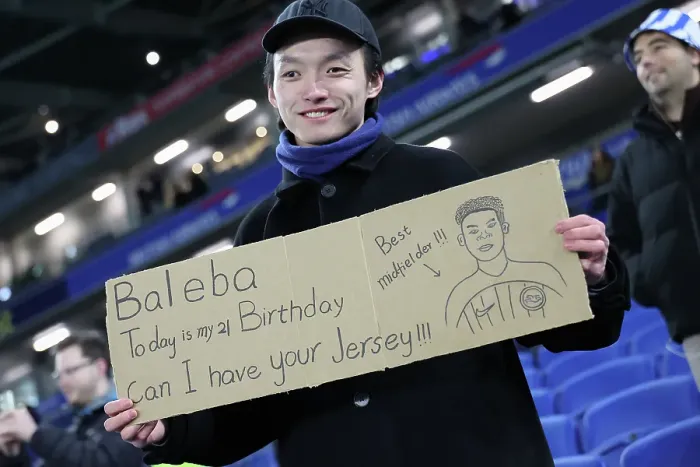 Baleba
Today is my 21 Birthday
Can I have your Jersey!!!
Best
midfielder!!!